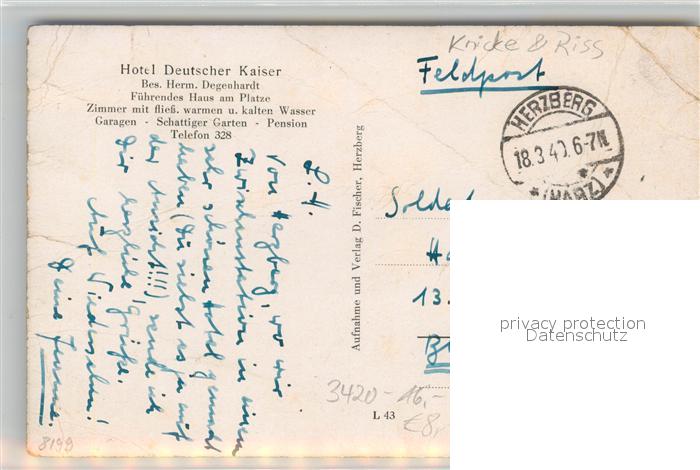 Hotel Deutscher Kaiser
Bes. Herm. Degenhardt
Führendes Haus am Platze
Zimmer mit fließ. warmen u. kalten Wasser
Garagen - Schattiger Garten - Pension
Telefon 328
Knicke & Riss
Feldpost
HERZBERG
18.3.40.6-7N
(HARZ)
L. H.
Von Herzberg, wo wir
Zwischenstation in einem
sehr schönen Hotel gemacht
haben (Du siehst es ja auf
der Ansicht!!!) sende ich
Dir herzliche Grüße.
Auf Wiedersehen!
Deine
Aufnahme und Verlag D. Fischer, Herzberg
Soldat
13.
privacy protection
Datenschutz
3420 - 16,-
€8,
L 43
8199